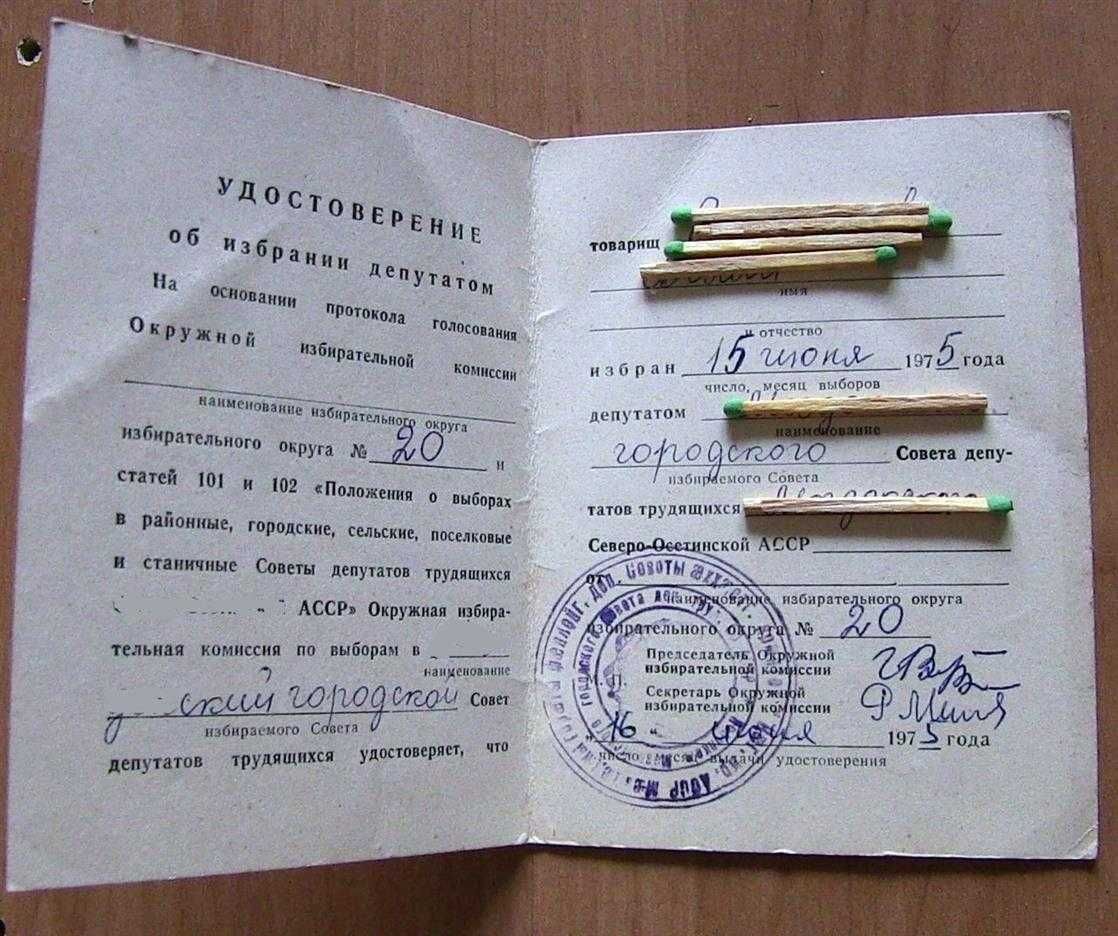 УДОСТОВЕРЕНИЕ
об избрании депутатом
На основании протокола голосования
Окружной избирательной комиссии
наименование избирательного округа
избирательного округа № 20 и
статей 101 и 102 «Положения о выборах
в районные, городские, сельские, поселковые
и станичные Советы депутатов трудящихся
АССР» Окружная избира-
тельная комиссия по выборам в
наименование
ский городской Совет
избираемого Совета
депутатов трудящихся удостоверяет, что
товарищ
имя
и отчество
избран 15 июня 1975 года
число, месяц выборов
депутатом
наименование
городского Совета депу-
избираемого Совета
татов трудящихся
Северо-Осетинской АССР
от
наименование избирательного округа
избирательного округа № 20
Председатель Окружной
избирательной комиссии
М. П.
Секретарь Окружной
избирательной комиссии
„16 “ июня 1975 года
число, месяц выдачи удостоверения